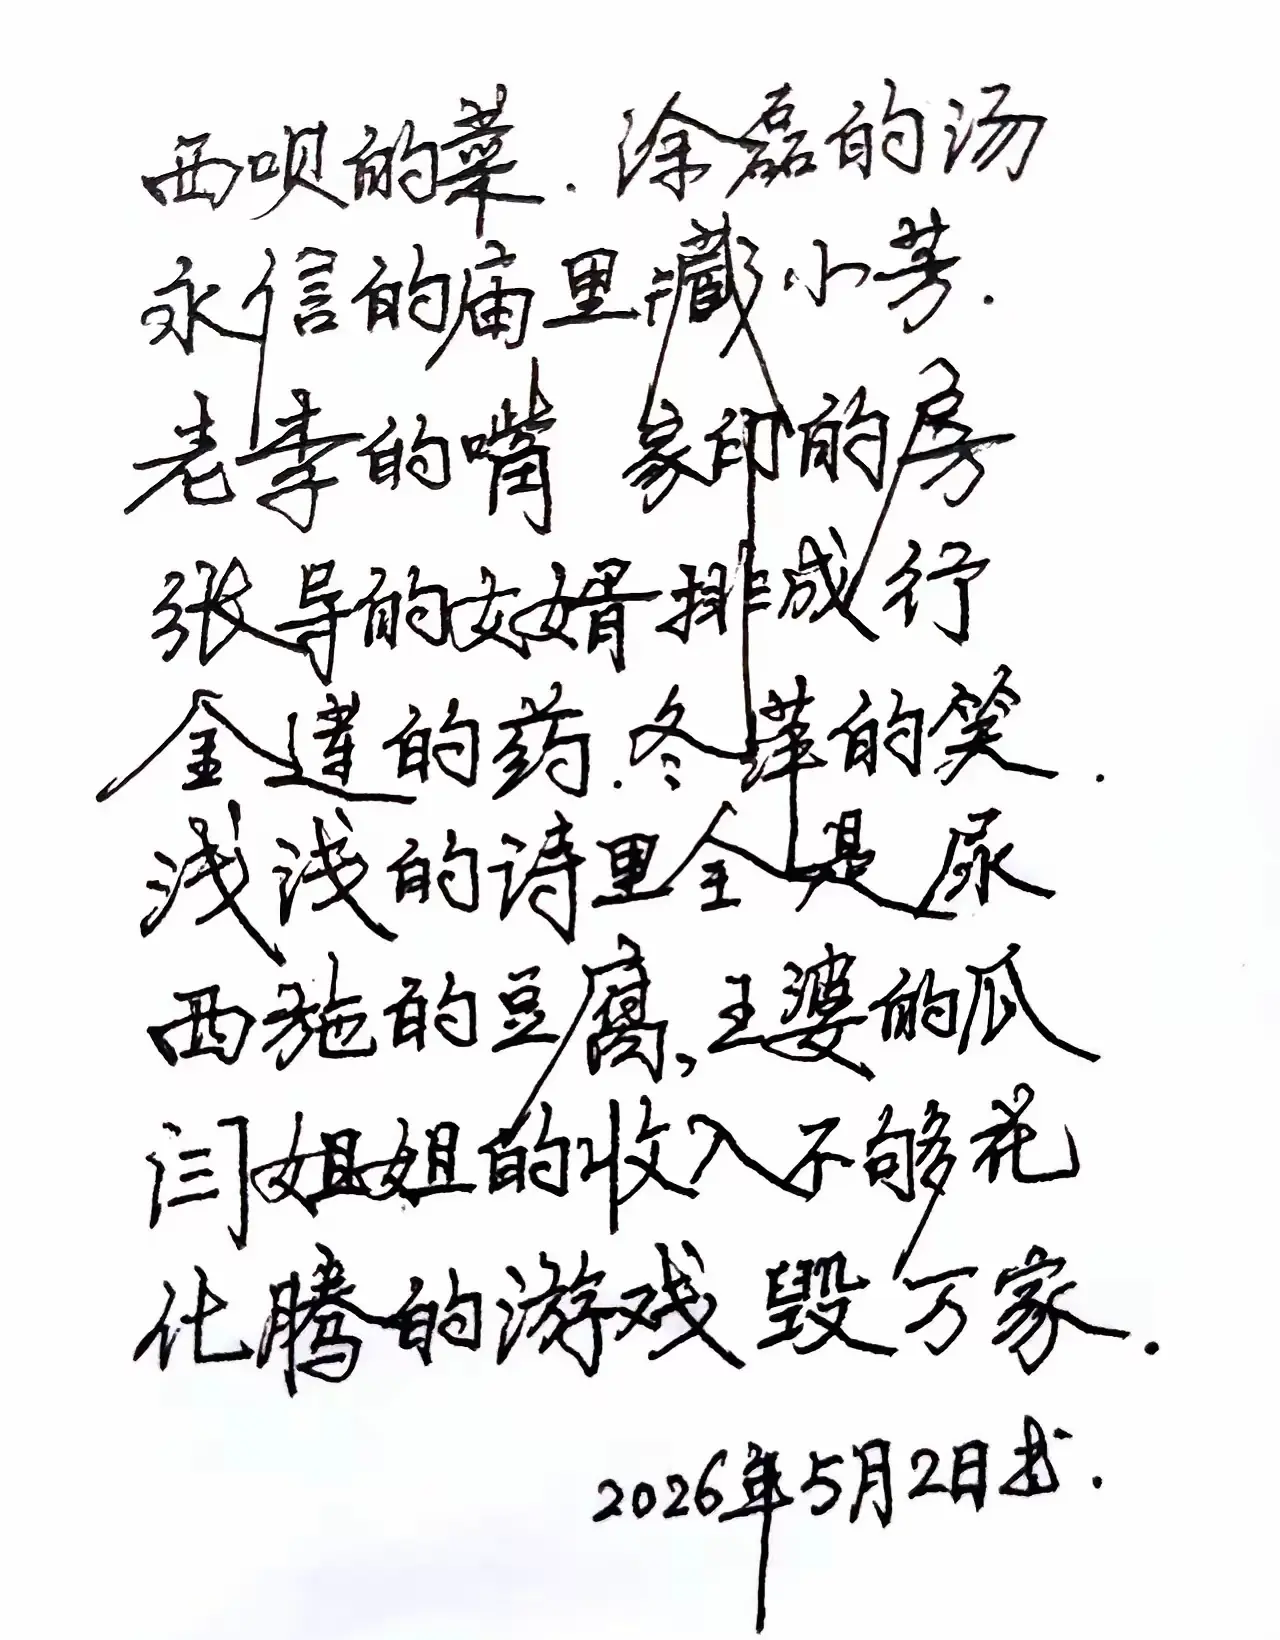 西呗的菜.涂磊的汤
永信的庙里藏小芳.
老李的嘴 家印的房
张导的女婿排成行
金莲的药.冬萍的笑.
浅浅的诗里全是尿
西施的豆腐,王婆的瓜
闫姐姐的收入不够花
化腾的游戏毁万家.
2026年5月2日书.